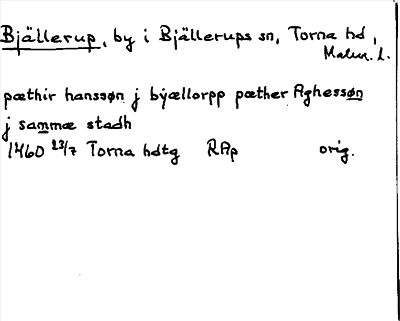 Bjällerup, by i Bjällerups sn, Torna hd,
Malm. l.
pæthir hanssøn j býællorpp pæther Aghessøn
j sammæ stadh
1460 23/7 Torna hdtg RAp orig.